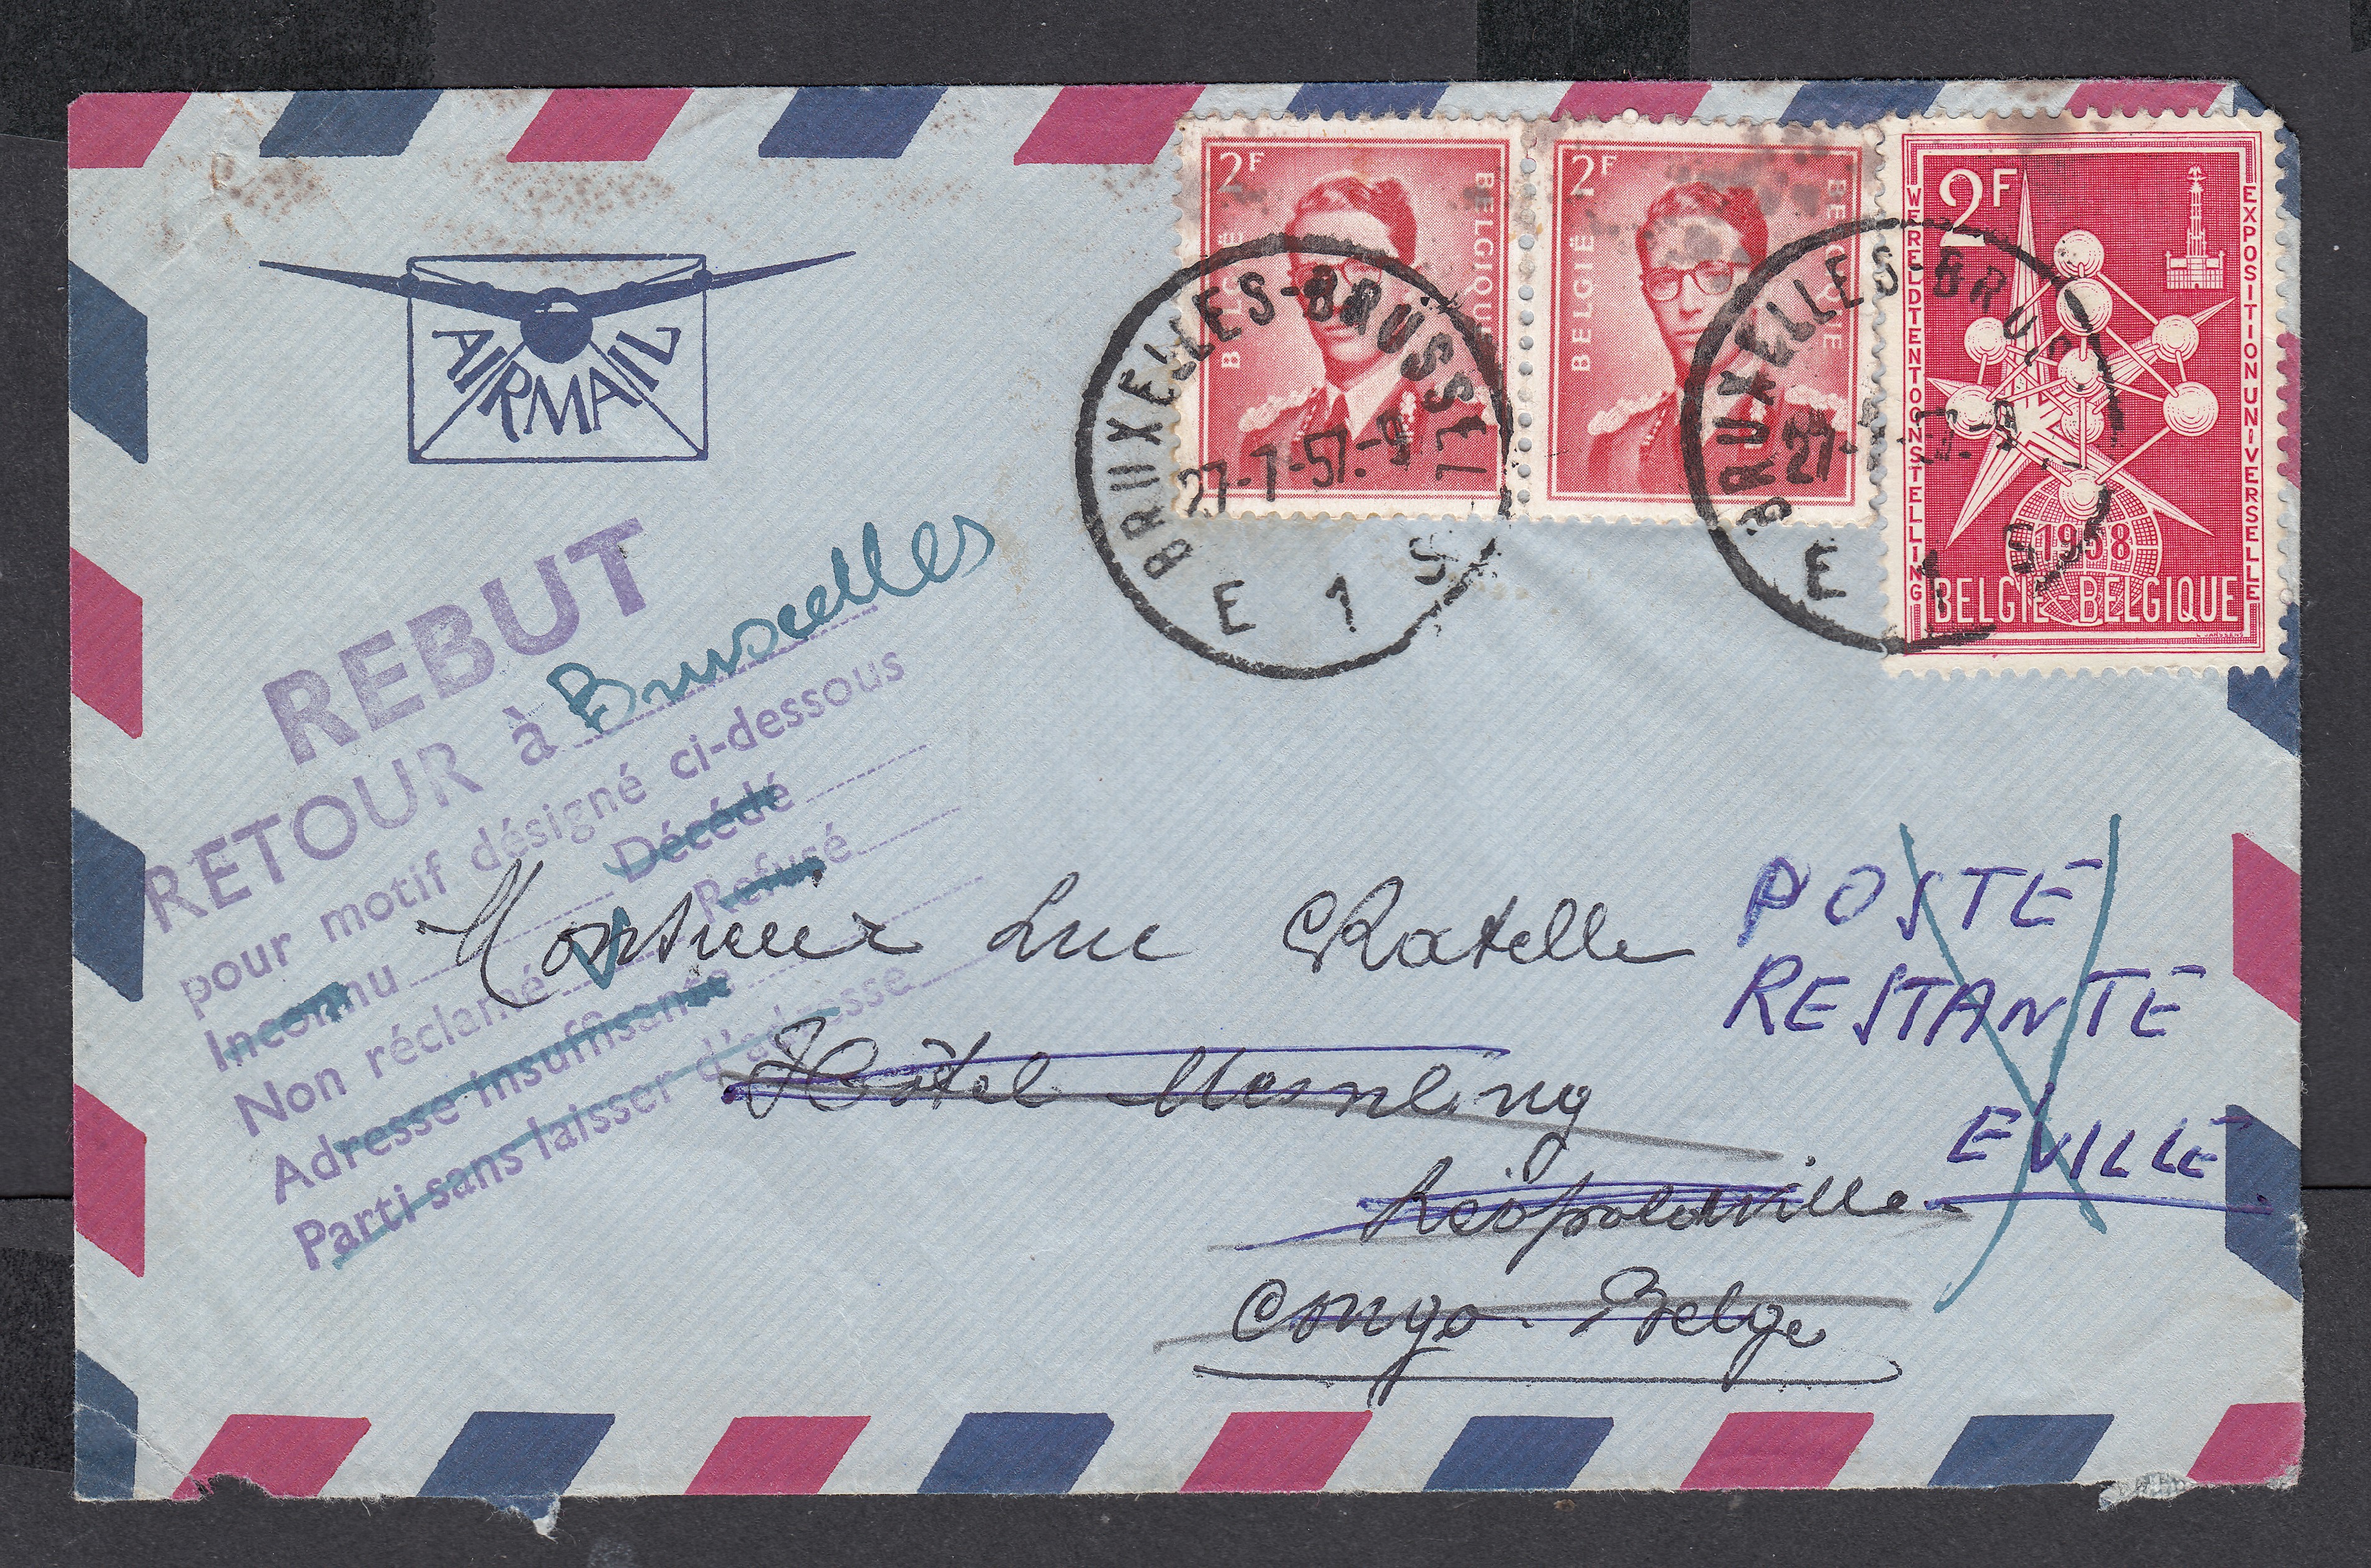 2F
BELGIË
BELGIQUE
2F
BELGIË
BELGIQUE
2F
WERELDTENTOONSTELLING
EXPOSITION UNIVERSELLE
1958
BELGIË-BELGIQUE
AIRMAIL
BRUXELLES-BRUSSEL
27-7-57.-9
E 1 S
BRUXELLES-BRUS
E 1 S
REBUT
RETOUR à Bruxelles
pour motif désigné ci-dessous
Décédé
Refusé
Inconnu
Non réclamé V
Adresse insuffisante
Parti sans laisser d'adresse
Monsieur Luc Ratelle
Hôtel
Léopoldville
Congo-Belge
POSTE
RESTANTE
EVILLE